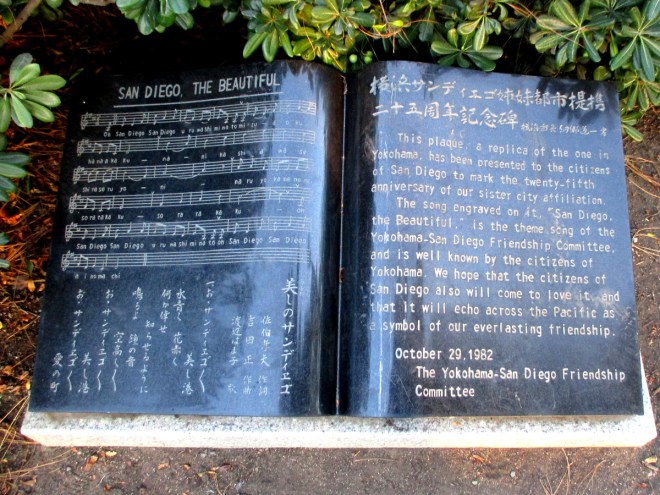 SAN DIEGO, THE BEAUTIFUL
Oh San Diego San Diego u ru wa shi mi na to mi
San Diego San Diego u ru wa shi mi na to oh San Diego San Diego
美しのサンディエゴ
吉田 正 作曲
おゝサンディエゴ
美し港
何か倖せ
知らせるように
鳴るよ 鐘の音
空高し
おゝサンディエゴ
美し港
おゝサンディエゴ
愛の町
横浜サンディエゴ姉妹都市提携
二十五周年記念碑
This plaque, a replica of the one in
Yokohama, has been presented to the citizens
of San Diego to mark the twenty-fifth
anniversary of our sister city affiliation.
The song engraved on it, "San Diego,
the Beautiful," is the theme song of the
Yokohama-San Diego Friendship Committee,
and is well known by the citizens of
Yokohama. We hope that the citizens of
San Diego also will come to love it, and
that it will echo across the Pacific as
a symbol of our everlasting friendship.
October 29, 1982
The Yokohama-San Diego Friendship
Committee